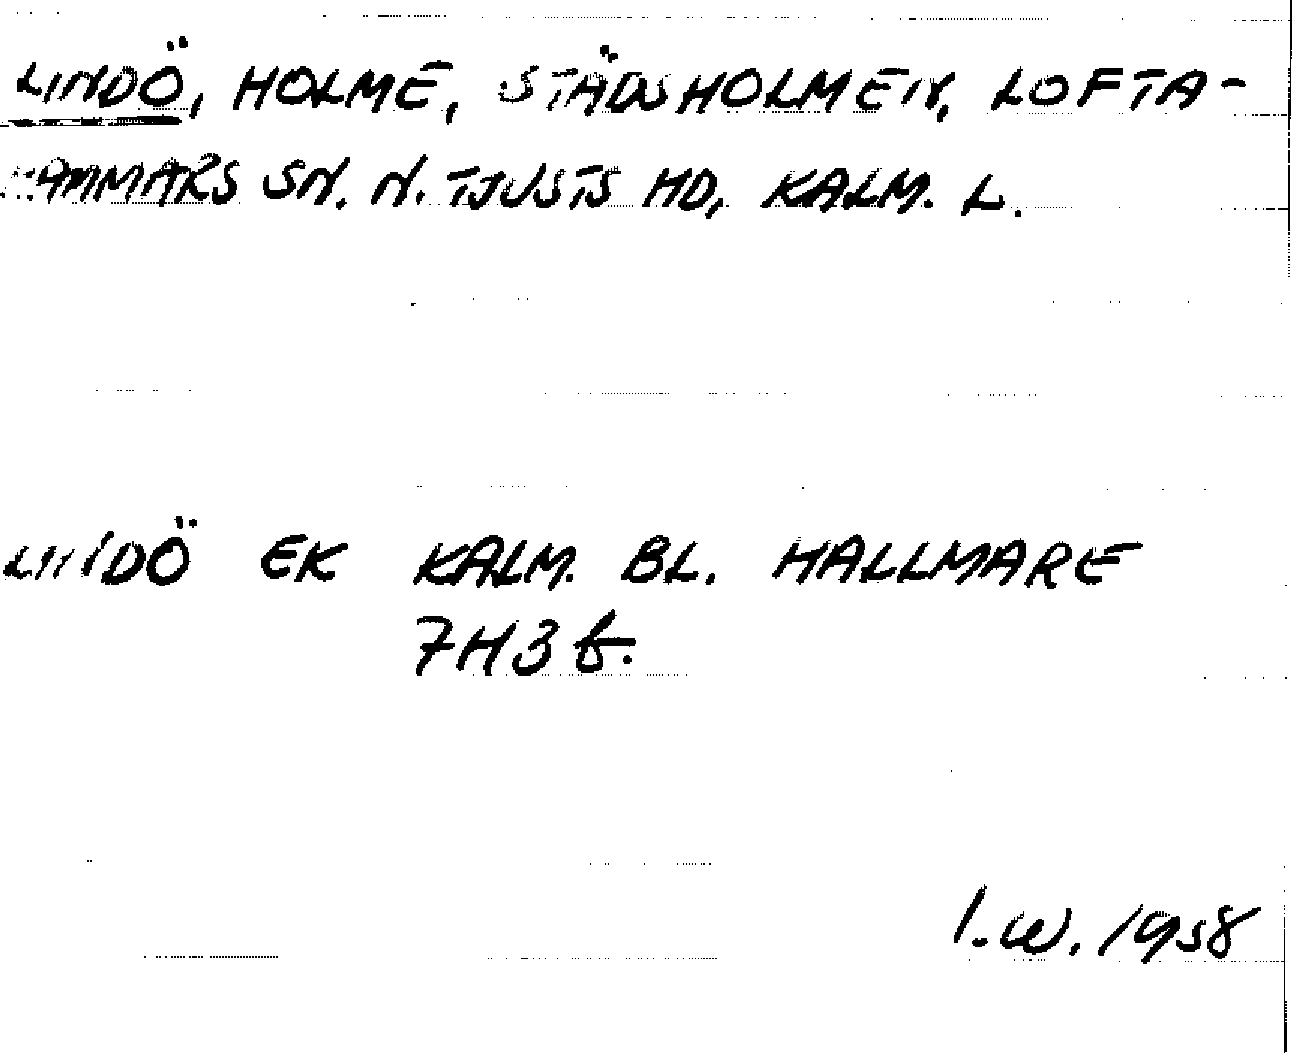 LINDÖ, HOLME, STÄDSHOLMEN, LOFTA-
HAMMARS SN. N. TJUSTS HD, KALM. L.
LINDÖ EK KALM. BL. HALLMARE
7H3f.
I.W. 1958